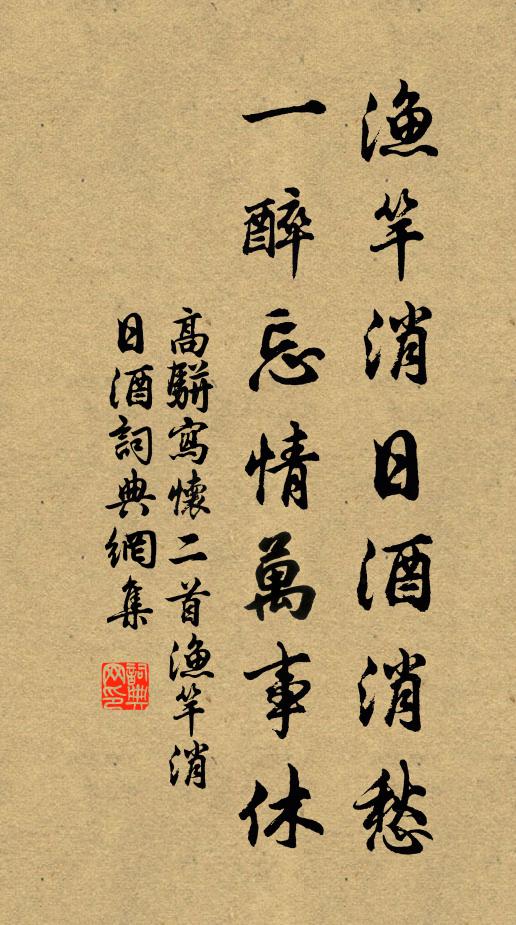 漁竿消日酒消愁
一醉忘情萬事休
高駢寫懷二首漁竿消
日酒詞典網集
詞典網印